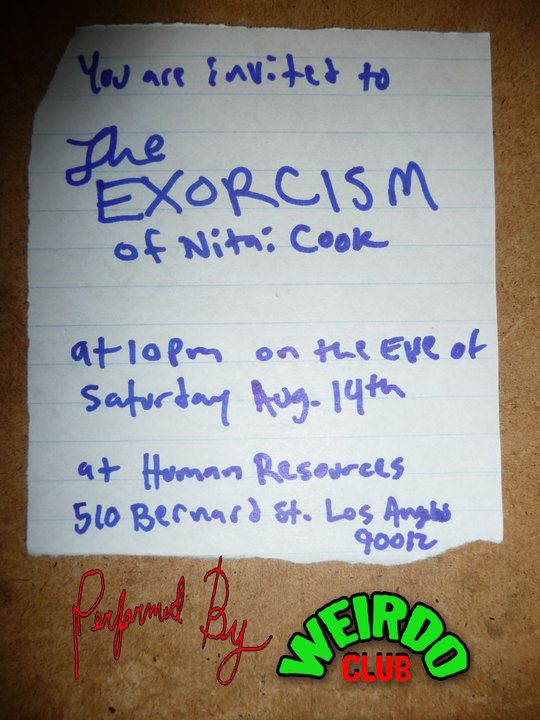 You are invited to
The
EXORCISM
of Nitai Cook
at 10pm on the Eve of
Saturday Aug. 14th
at Human Resources
510 Bernard St. Los Angles
90012
Performed By
WEIRDO
CLUB